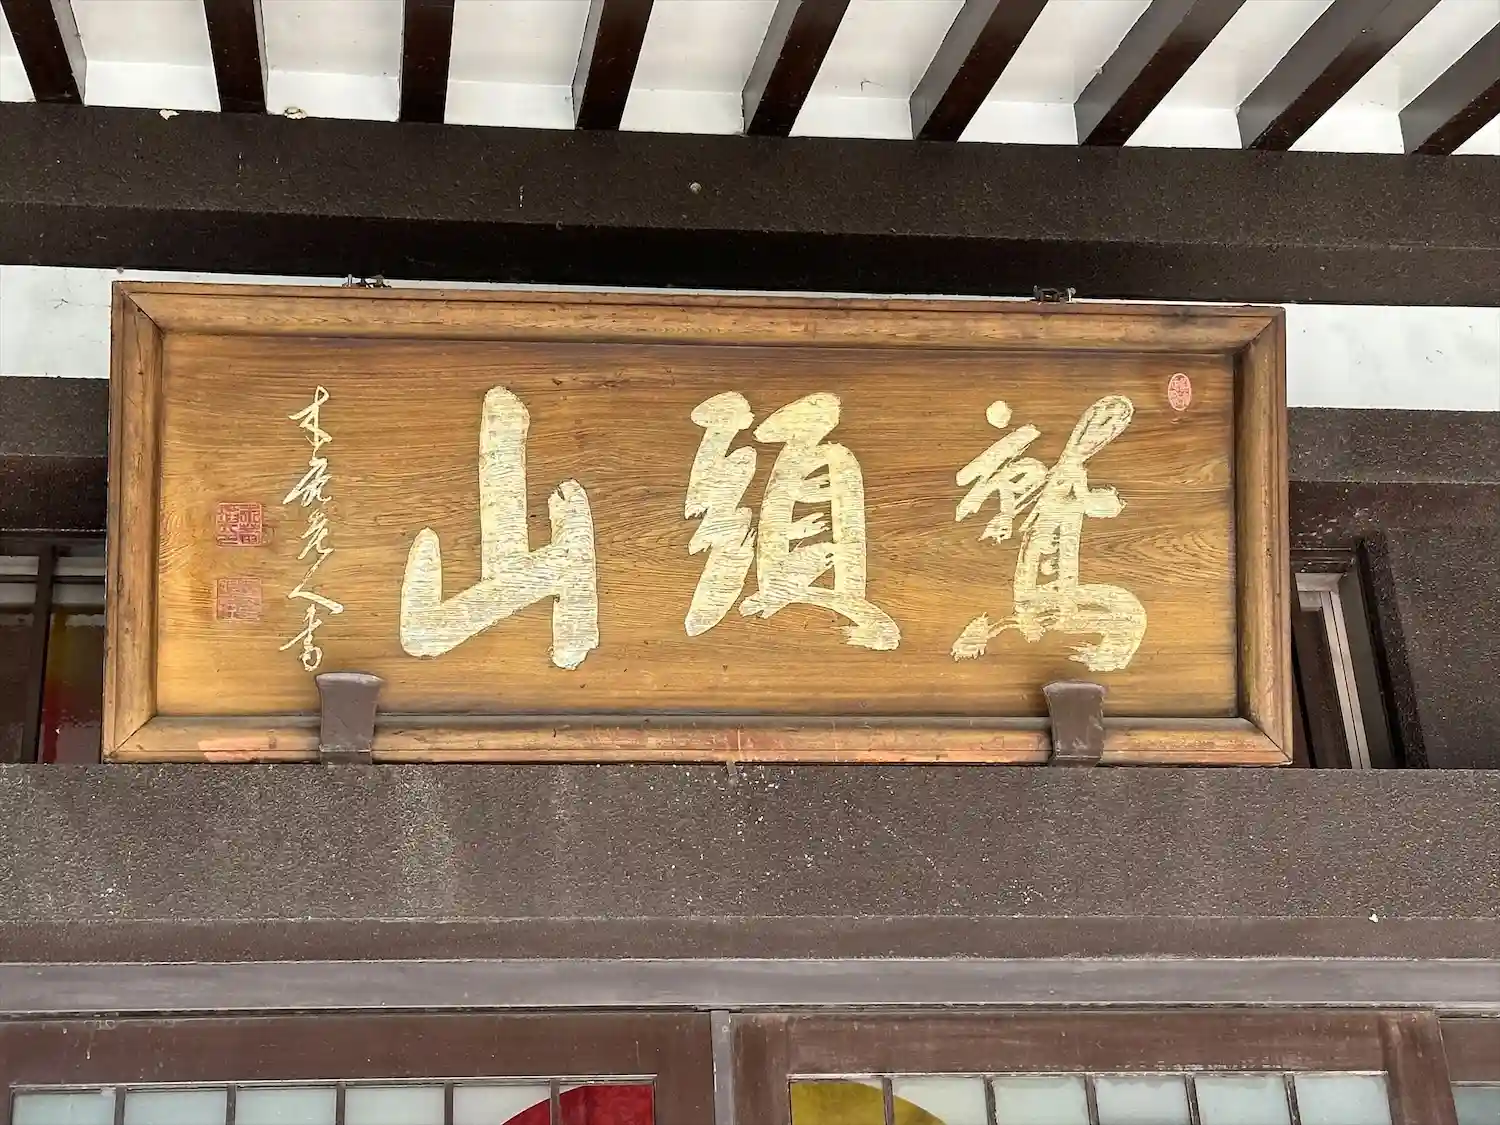 鷲頭山
老人書